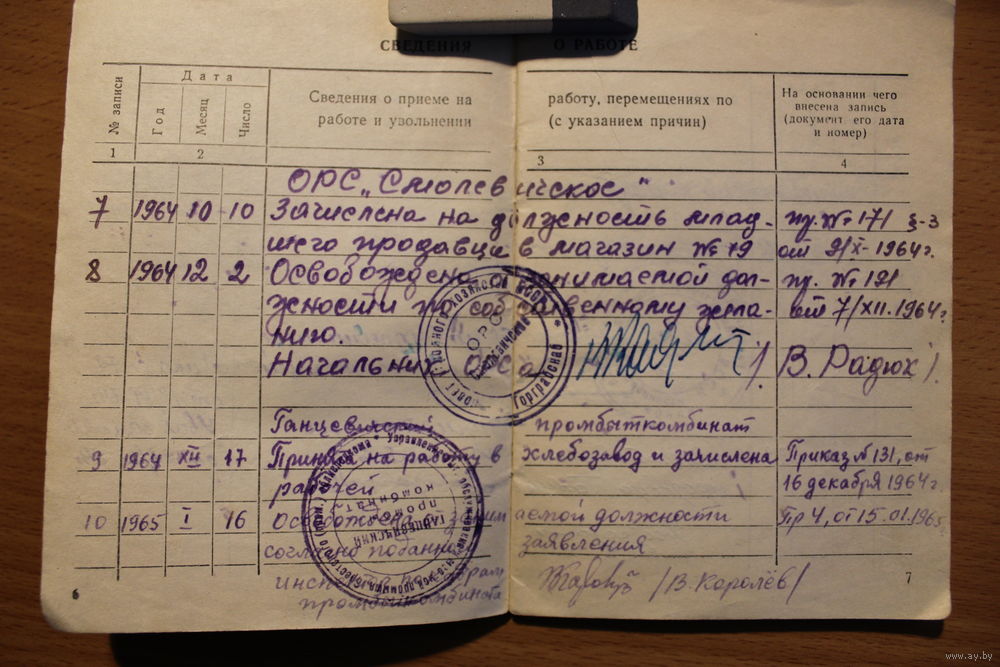 СВЕДЕНИЯ О РАБОТЕ
№ записи
Дата
Год
Месяц
Число
Сведения о приеме на работу, перемещениях по
работе и увольнении (с указанием причин)
На основании чего
внесена запись
(документ его дата
и номер)
1 2 3 4
ОРС „Смолевичское"
7 1964 10 10 Зачислена на должность млад- пр. № 171 §-3
шего продавца в магазин № 19 от 9/X-1964г.
8 1964 12 2 Освобождена от занимаемой дол- пр. № 191
жности по собственному жела- от 7/XII.1964г.
нию.
Начальник ОРСа /В. Радюк/.
Ганцевичский промбыткомбинат
9 1964 XII 17 Принята на работу в хлебозавод и зачислена Приказ №131, от
рабочей 16 декабря 1964г.
10 1965 I 16 Освобождена от занимаемой должности Пр 4, от 15.01.1965
согласно поданного заявления
инспектор по
промбыткомбината /В. Королёв/
6 7
www.ay.by